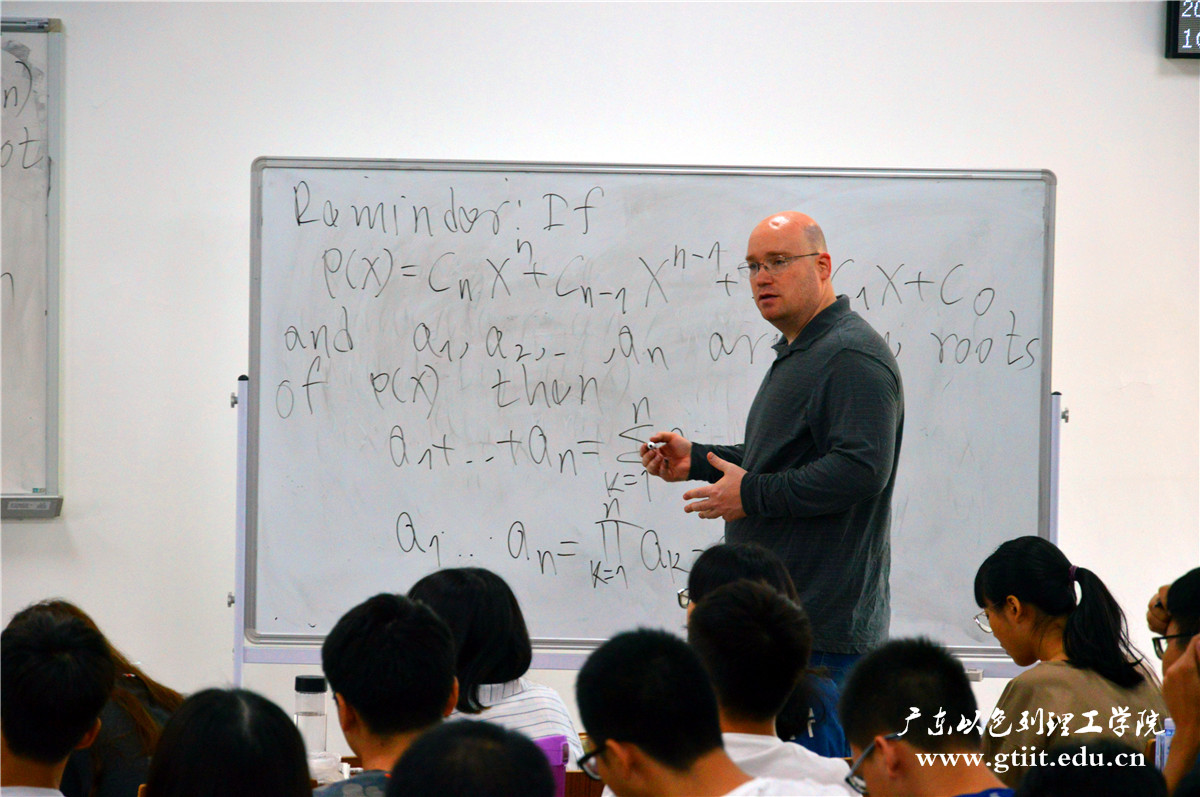 n)
ot
n
20
10
Remindor: If
P(X)=CₙXⁿ+Cₙ₋₁Xⁿ⁻¹+ C₁X+C₀
and a₁,a₂,..,aₙ ar , roots
of P(X) then
a₁+...+aₙ=∑ₖ₌₁ⁿ
a₁...aₙ=∏ₖ₌₁ⁿ aₖ=
广东以色列理工学院
www.gtiit.edu.cn